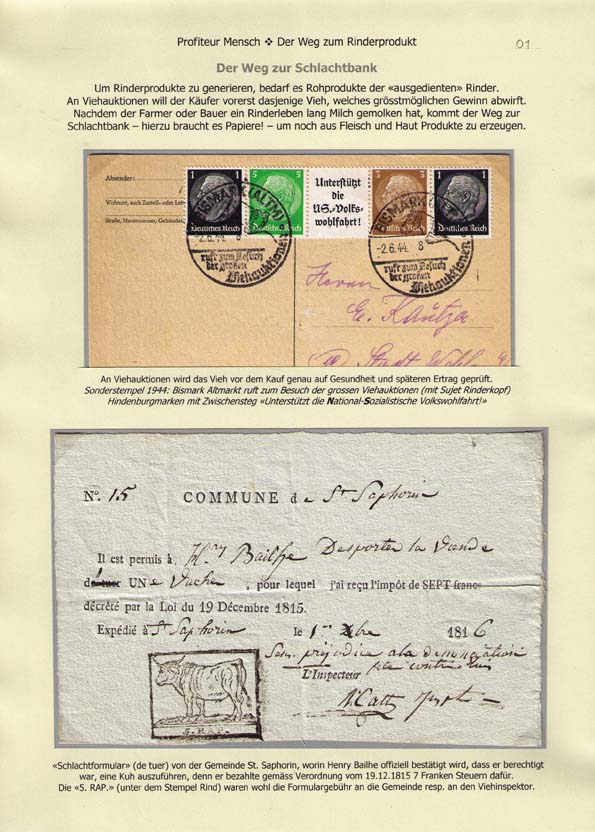 Profiteur Mensch ❖ Der Weg zum Rinderprodukt
01
Der Weg zur Schlachtbank
Um Rinderprodukte zu generieren, bedarf es Rohprodukte der «ausgedienten» Rinder.
An Viehauktionen will der Käufer vorerst dasjenige Vieh, welches grösstmöglichen Gewinn abwirft.
Nachdem der Farmer oder Bauer ein Rinderleben lang Milch gemolken hat, kommt der Weg zur
Schlachtbank – hierzu braucht es Papiere! – um noch aus Fleisch und Haut Produkte zu erzeugen.
Absender:
Wohnort, auch Zustell- oder Leit
Straße, Hausnummer, Gebäudet
1 1
Deutsches Reich
5 5
Deutsches Reich
Unterstützt
die
NS.-Volks-
wohlfahrt!
3 3
Deutsches Reich
1 1
Deutsches Reich
BISMARK (ALTM)
-2.6.44. 8
ruft zum Besuch
der großen
Viehauktionen
BISMARK
-2.6.44. 8
ruft zum Besuch
der großen
Viehauktionen
Herrn
E. Kautza
An Viehauktionen wird das Vieh vor dem Kauf genau auf Gesundheit und späteren Ertrag geprüft.
Sonderstempel 1944: Bismark Altmarkt ruft zum Besuch der grossen Viehauktionen (mit Sujet Rinderkopf)
Hindenburgmarken mit Zwischensteg «Unterstützt die National-Sozialistische Volkswohlfahrt!»
N°. 15 COMMUNE de St Saphorin
Il est permis à Hry Bailhe Desporter la viande
de tuer UNe Vache, pour lequel j'ai reçu l'impôt de SEPT francs
décrété par la Loi du 19 Décembre 1815.
Expédié à St Saphorin le 1er Xbre 1816
Sans préjudice a la denonciation
L'Inspecteur
5. RAP.
«Schlachtformular» (de tuer) von der Gemeinde St. Saphorin, worin Henry Bailhe offiziell bestätigt wird, dass er berechtigt
war, eine Kuh auszuführen, denn er bezahlte gemäss Verordnung vom 19.12.1815 7 Franken Steuern dafür.
Die «5. RAP.» (unter dem Stempel Rind) waren wohl die Formulargebühr an die Gemeinde resp. an den Viehinspektor.